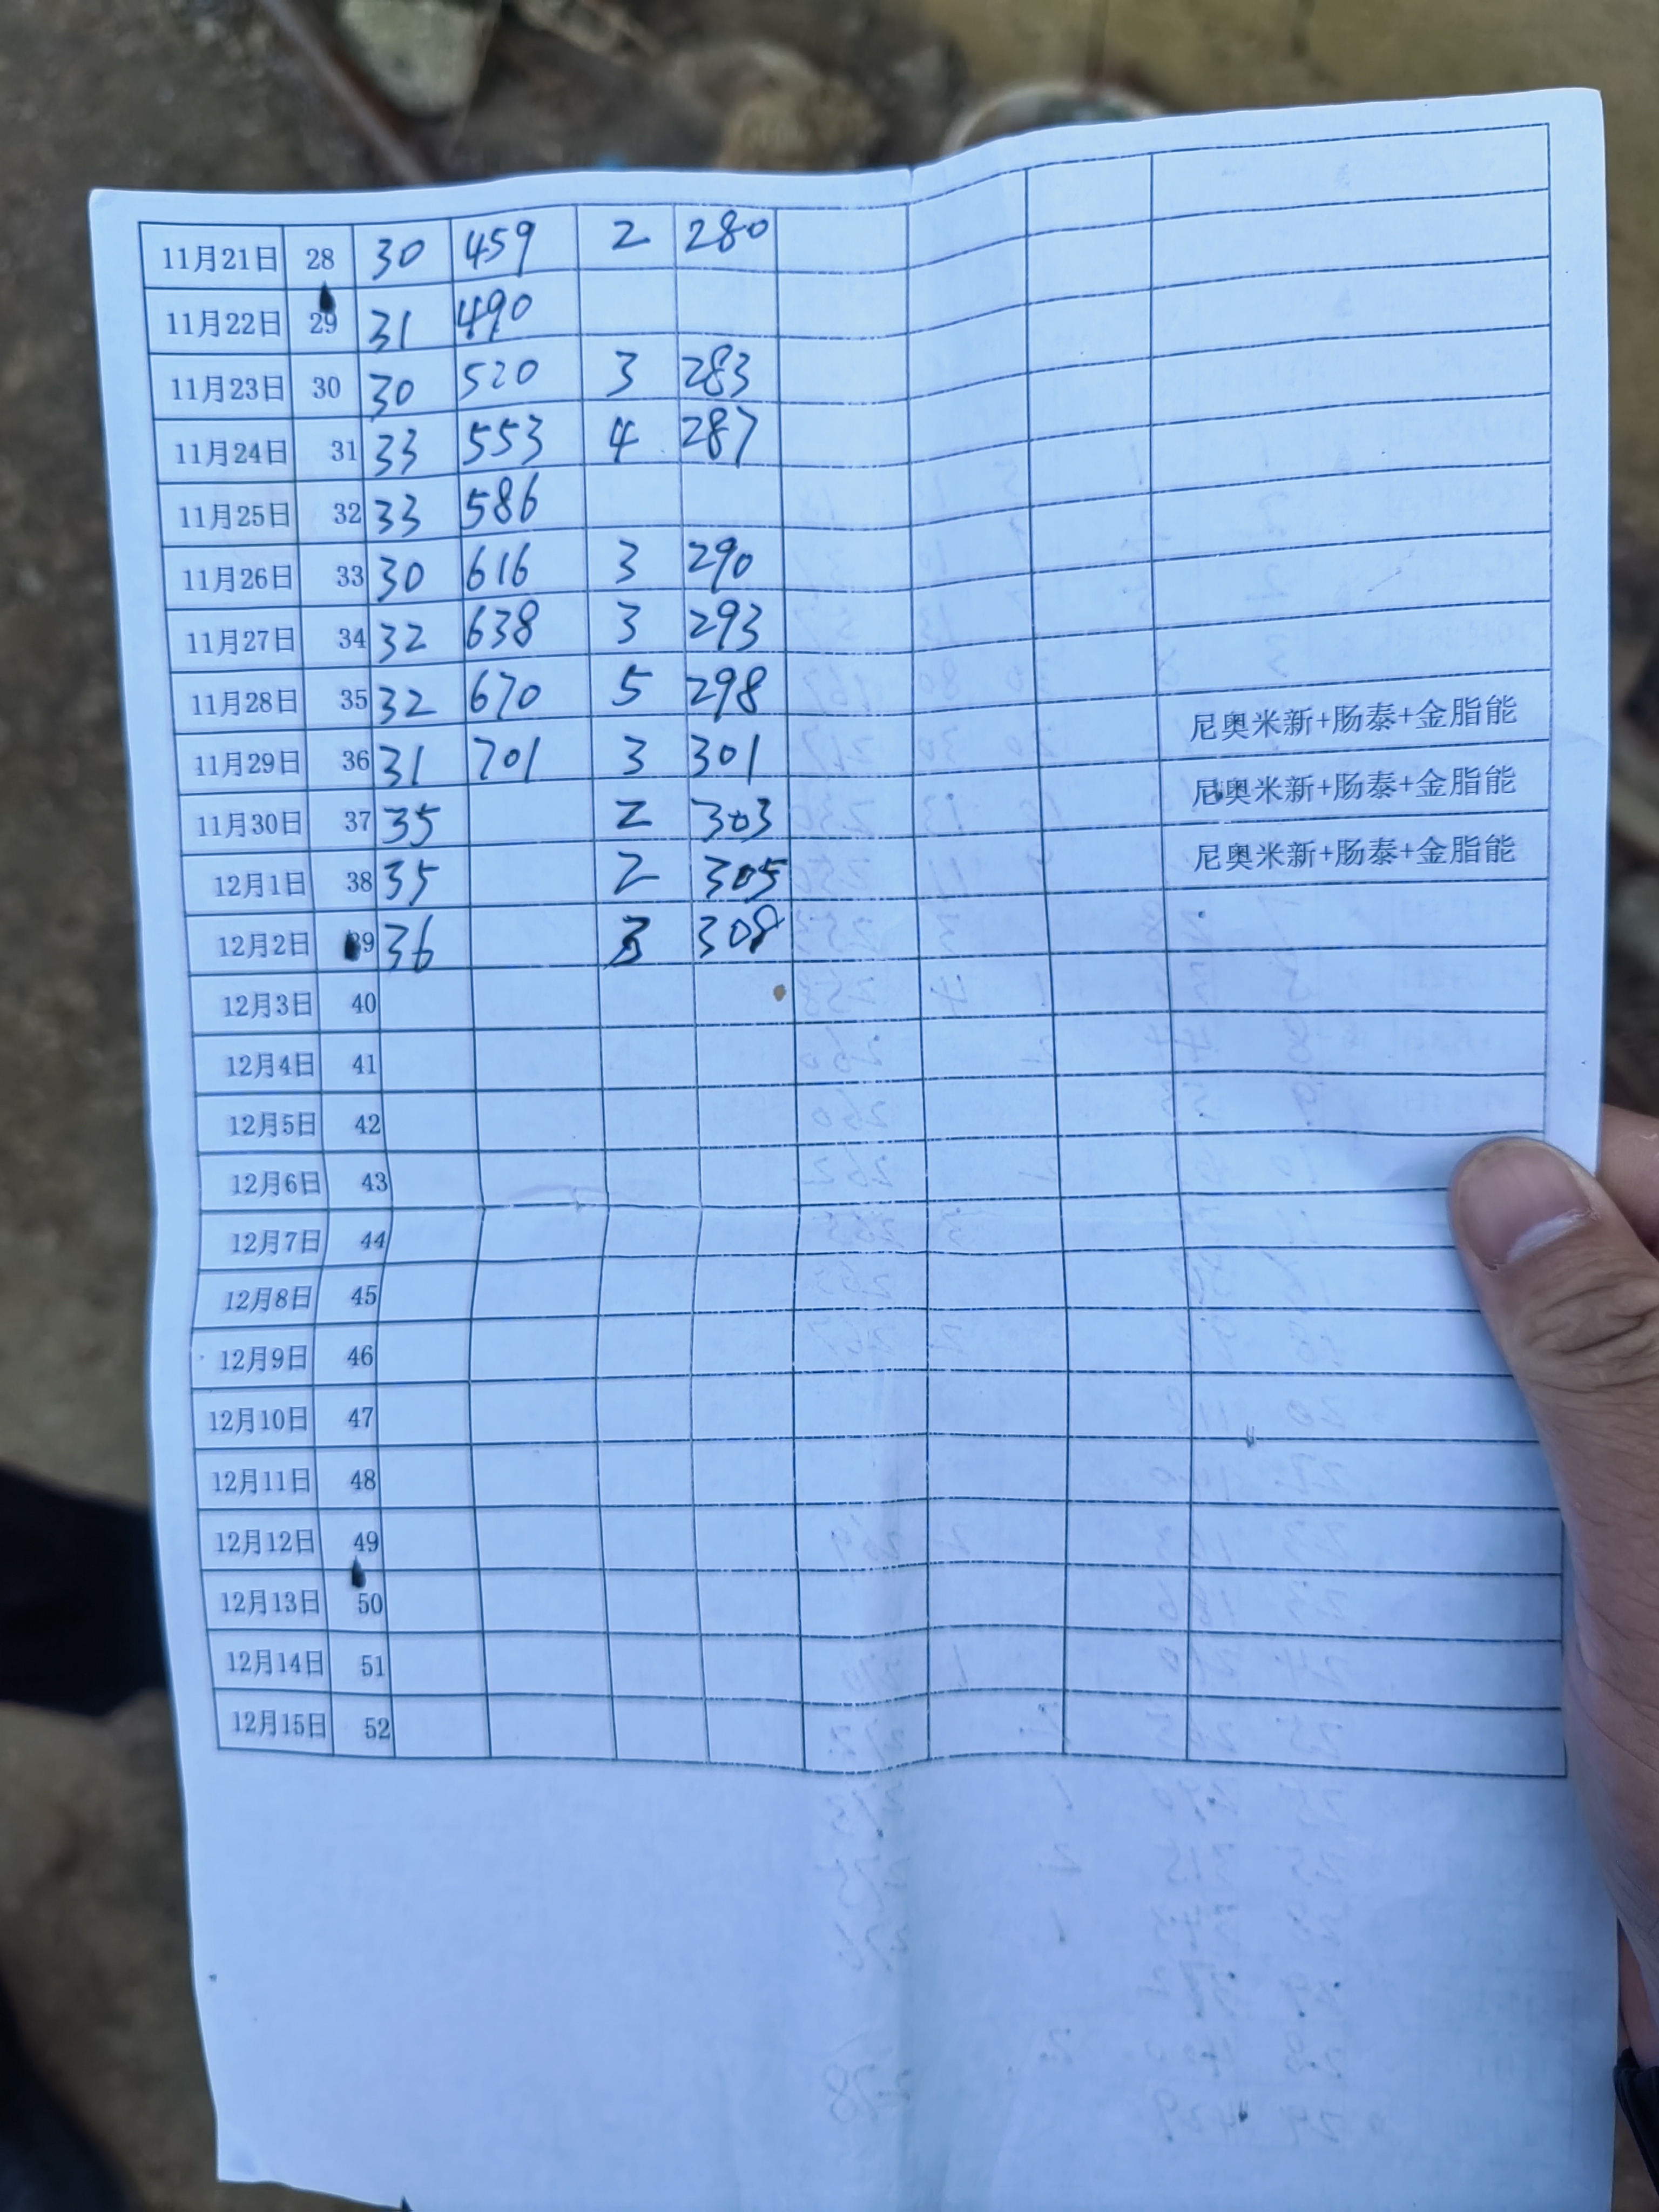 11月21日 28 30 459 2 280
11月22日 29 31 490
11月23日 30 30 520 3 283
11月24日 31 33 553 4 287
11月25日 32 33 586
11月26日 33 30 616 3 290
11月27日 34 32 638 3 293
11月28日 35 32 670 5 298 尼奥米新+肠泰+金脂能
11月29日 36 31 701 3 301 尼奥米新+肠泰+金脂能
11月30日 37 35 2 303 尼奥米新+肠泰+金脂能
12月1日 38 35 2 305
12月2日 39 36 3 308
12月3日 40
12月4日 41
12月5日 42
12月6日 43
12月7日 44
12月8日 45
12月9日 46
12月10日 47
12月11日 48
12月12日 49
12月13日 50
12月14日 51
12月15日 52